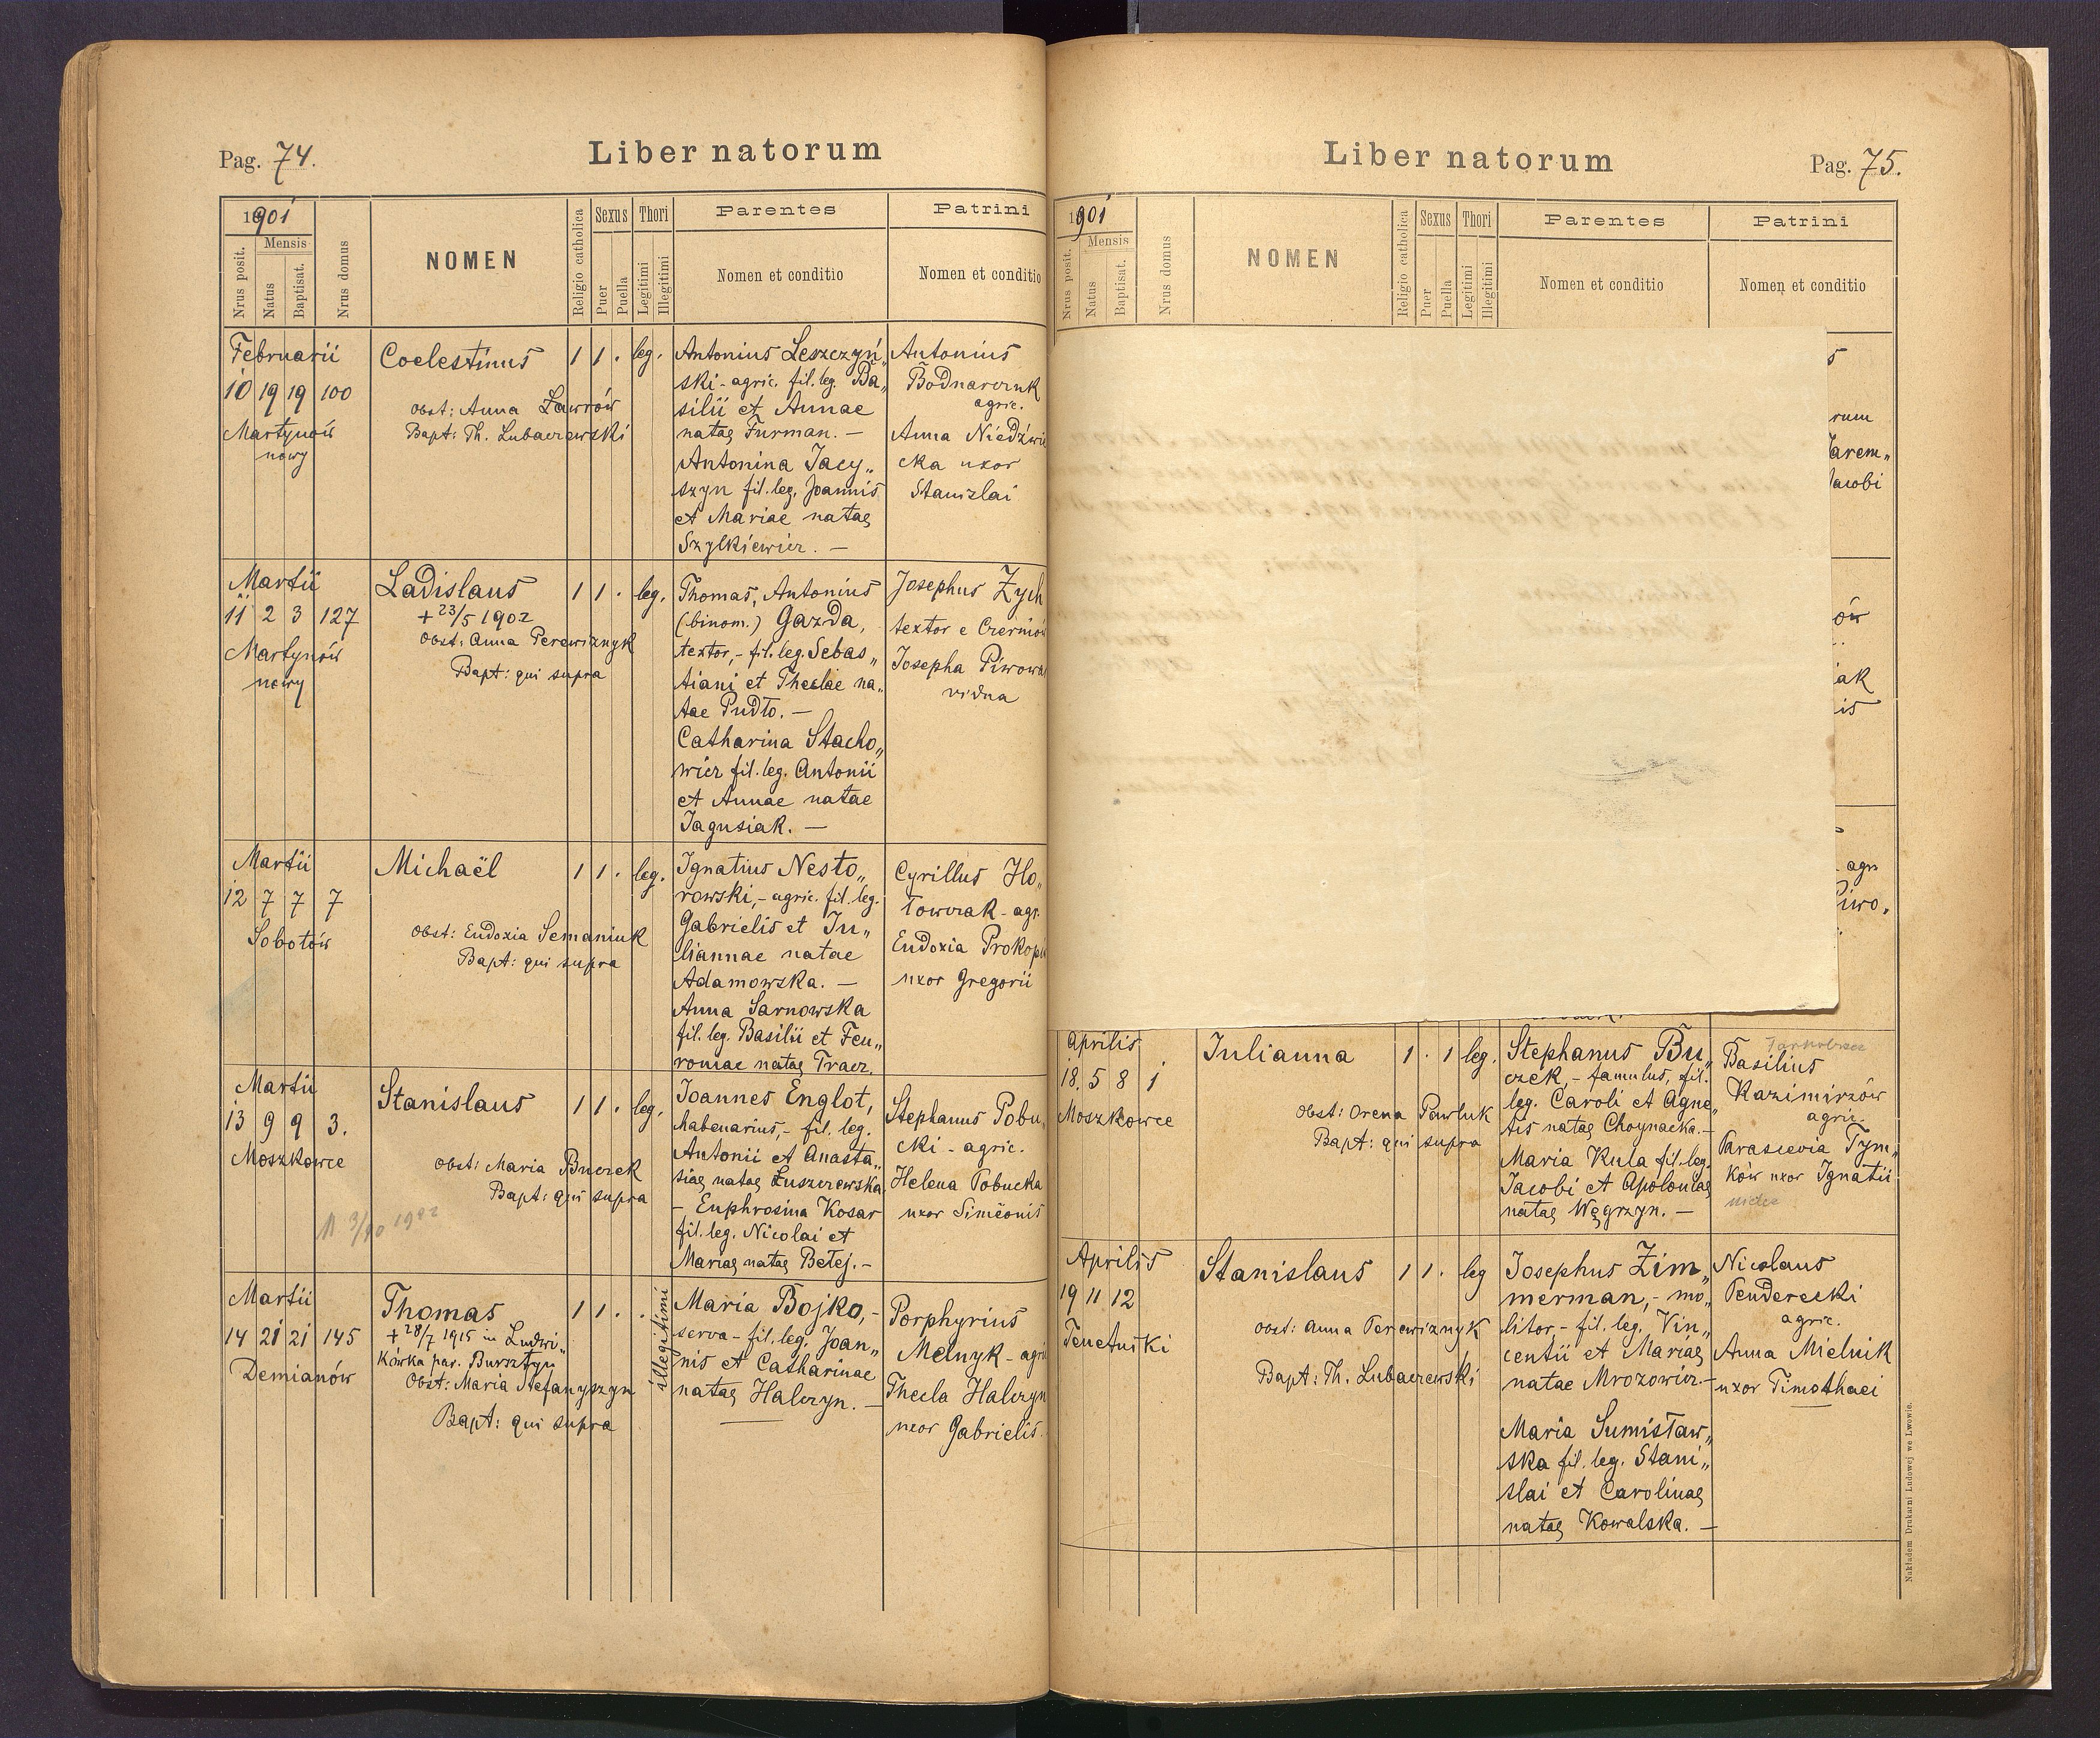 Pag. 74.
Liber natorum
1901
Nrus posit.
Mensis
Natus
Baptisat.
Nrus domus
NOMEN
Religio catholica
Sexus
Puer
Puella
Thori
Legitimi
Illegitimi
Parentes
Nomen et conditio
Patrini
Nomen et conditio
Februarii
10 19 19 100
Martynów
nowy
Coelestinus
Obst: Anna Ławrów
Bapt: Th. Lubaczewski
1 1 . leg.
Antonius Leszczyń„
ski - agric. fil. leg. Ba„
silii et Annae
natae Furman. —
Antonina Jacy„
szyn fil. leg. Joannis
et Mariae natae
Szylkiewicz. —
Antonius
Bodnarczuk
agric.
Anna Niedźwie
cka uxor
Stanislai
Martii
11 2 3 127
Martynów
nowy
Ladislaus
+ 23/5 1902
Obst: Anna Perewiznyk
Bapt: qui supra
1 1 . leg.
Thomas, Antonius
(binom.) Gazda,
textor, - fil. leg. Sebas„
tiani et Theclae na„
tae Pudło. —
Catharina Stacho„
wicz fil. leg. Antonii
et Annae natae
Jagusiak. —
Josephus Zych
textor e Czerniów
Josepha Piwowar
vidua
Martii
12 7 7 7
Sobotów
Michaël
Obst: Eudoxia Semaniuk
Bapt: qui supra
1 1 . leg.
Ignatius Nesto„
rowski, - agric. fil. leg.
Gabrielis et Ju„
liannae natae
Adamowska. —
Anna Sarnowska
fil. leg. Basilii et Feu„
roniae natae Tracz.
Cyrillus Ho„
łowczak - agr.
Eudoxia Prokop
uxor Gregorii
Martii
13 9 9 3.
Moszkowce
Stanislaus
Obst: Maria Buczek
Bapt: qui supra
3/10 1902
1 1 . leg.
Joannes Englot,
habenarius, - fil. leg.
Antonii et Anasta„
siae natae Łuszczewska
- Euphrosina Kosar
fil. leg. Nicolai et
Mariae natae Betej. -
Stephanus Pobu„
cki - agric.
Helena Pobucka
uxor Simeonis
Martii
14 21 21 145
Demianów
Thomas
+ 28/7 1915 in Ludwi„
kówka par. Bursztyn
Obst: Maria Stefanyszyn
Bapt: qui supra
1 1 . .
illegitimi
Maria Bojko, -
serva - fil. leg. Joan„
nis et Catharinae
natae Halczyn. —
Porphyrius
Melnyk - agri
Thecla Halczyn
uxor Gabrielis.
Liber natorum
Pag. 75.
1901
Nrus posit.
Mensis
Natus
Baptisat.
Nrus domus
NOMEN
Religio catholica
Sexus
Puer
Puella
Thori
Legitimi
Illegitimi
Parentes
Nomen et conditio
Patrini
Nomen et conditio
rum
Jarem„
Jacobi
ów
iak
is
- agr
Piwo„
Aprilis
18. 5 8 1
Moszkowce
Julianna
Obst: Orena Pawluk
Bapt: qui supra
1 . 1 leg.
Stephanus Bu„
czek, - famulus, fil.
leg. Caroli et Agne„
tis natae Choynacka. -
Maria Kula fil. leg.
Jacobi et Apoloniae
natae Węgrzyn. —
Basilius
Kazimirzów
agric.
Parascevia Tym„
ków uxor Ignatii
Aprilis
19 11 12
Tenetniki
Stanislaus
Obst: Anna Perewiznyk
Bapt: Th. Lubaczewski
1 1 . leg
Josephus Zim„
merman, - mo„
litor, - fil. leg. Vin„
centii et Mariae
natae Mrozowicz. -
Maria Sumisław„
ska fil. leg. Stani„
slai et Carolinae
natae Kowalska. —
Nicolaus
Penderecki
agric.
Anna Mielnik
uxor Timothaei
Nakładem Drukarni Ludowej we Lwowie.